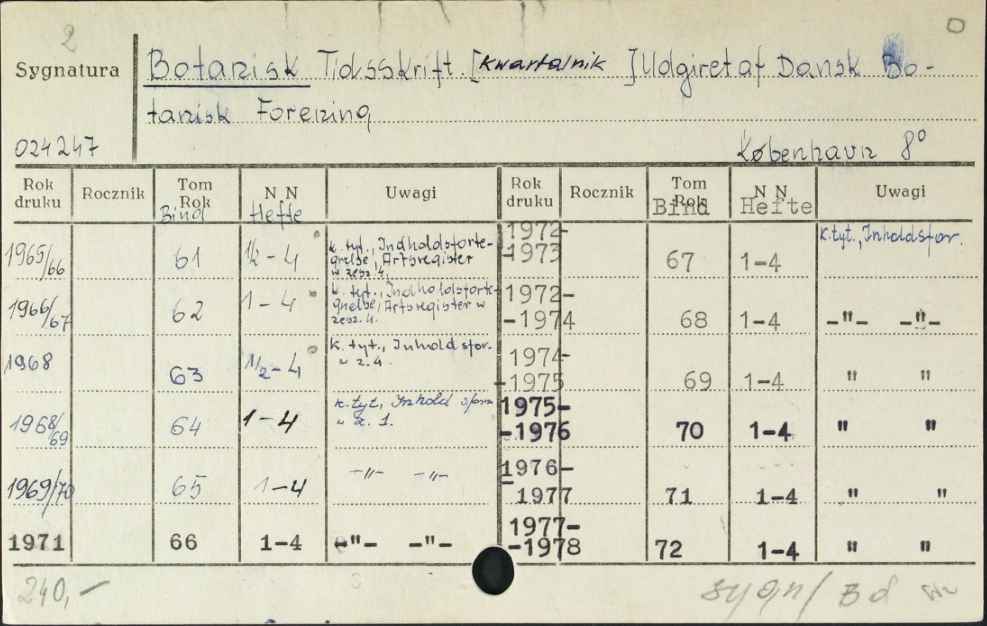 2
Sygnatura
Botanisk Tidsskrift. [kwartalnik] Udgiret af Dansk Bo-
tanisk Forening
024247
København 8°
Rok druku Rocznik Tom Rok Bind N N Hefte Uwagi Rok druku Rocznik Tom Rok Bind N N Hefte Uwagi
1965/66 61 1/2-4 k. tyt., Indholdsforte-
gnelse, Artsregister
w zesz. 4.
1972-
-1973 67 1-4 k.tyt., Inholdsfor.
1966/67 62 1-4 k. tyt., Indholdsforte-
gnelse, Artsregister w
zesz. 4.
1972-
-1974 68 1-4 -"- -"-
1968 63 1/2-4 k. tyt., Inholdsfor.
w z. 4.
1974-
-1975 69 1-4 " "
1968/69 64 1-4 k. tyt., Inhold sforn
w z. 1.
1975-
-1976 70 1-4 " "
1969/70 65 1-4 -"- -"-
1976-
1977 71 1-4 " "
1971 66 1-4 -"- -"-
1977-
-1978 72 1-4 " "
240,-
sygn/ Bd